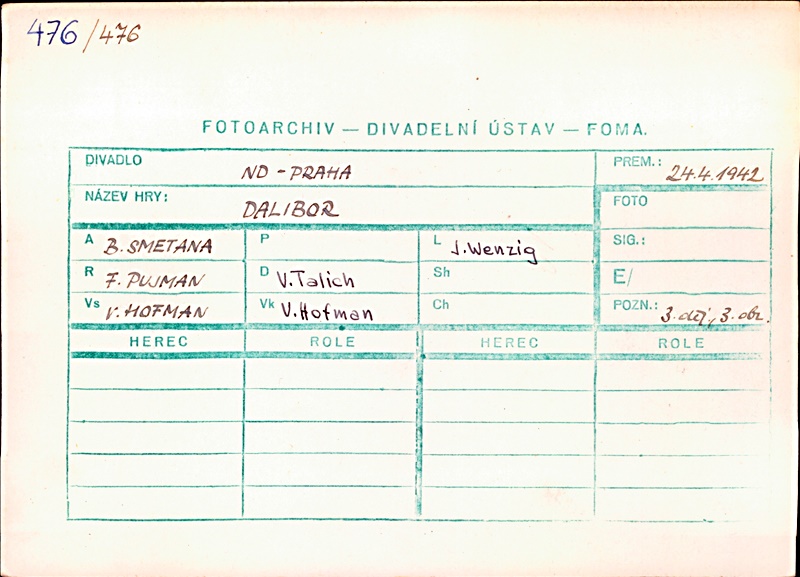 476/476
FOTOARCHIV — DIVADELNÍ ÚSTAV — FOMA.
DIVADLO ND - PRAHA PREM.: 24.4.1942
NÁZEV HRY: DALIBOR FOTO
A B. SMETANA P L J. Wenzig SIG.:
R F. PUJMAN D V. Talich Sh E/
Vs V. HOFMAN Vk V. Hofman Ch POZN.: 3. děj., 3. obr.
HEREC ROLE HEREC ROLE